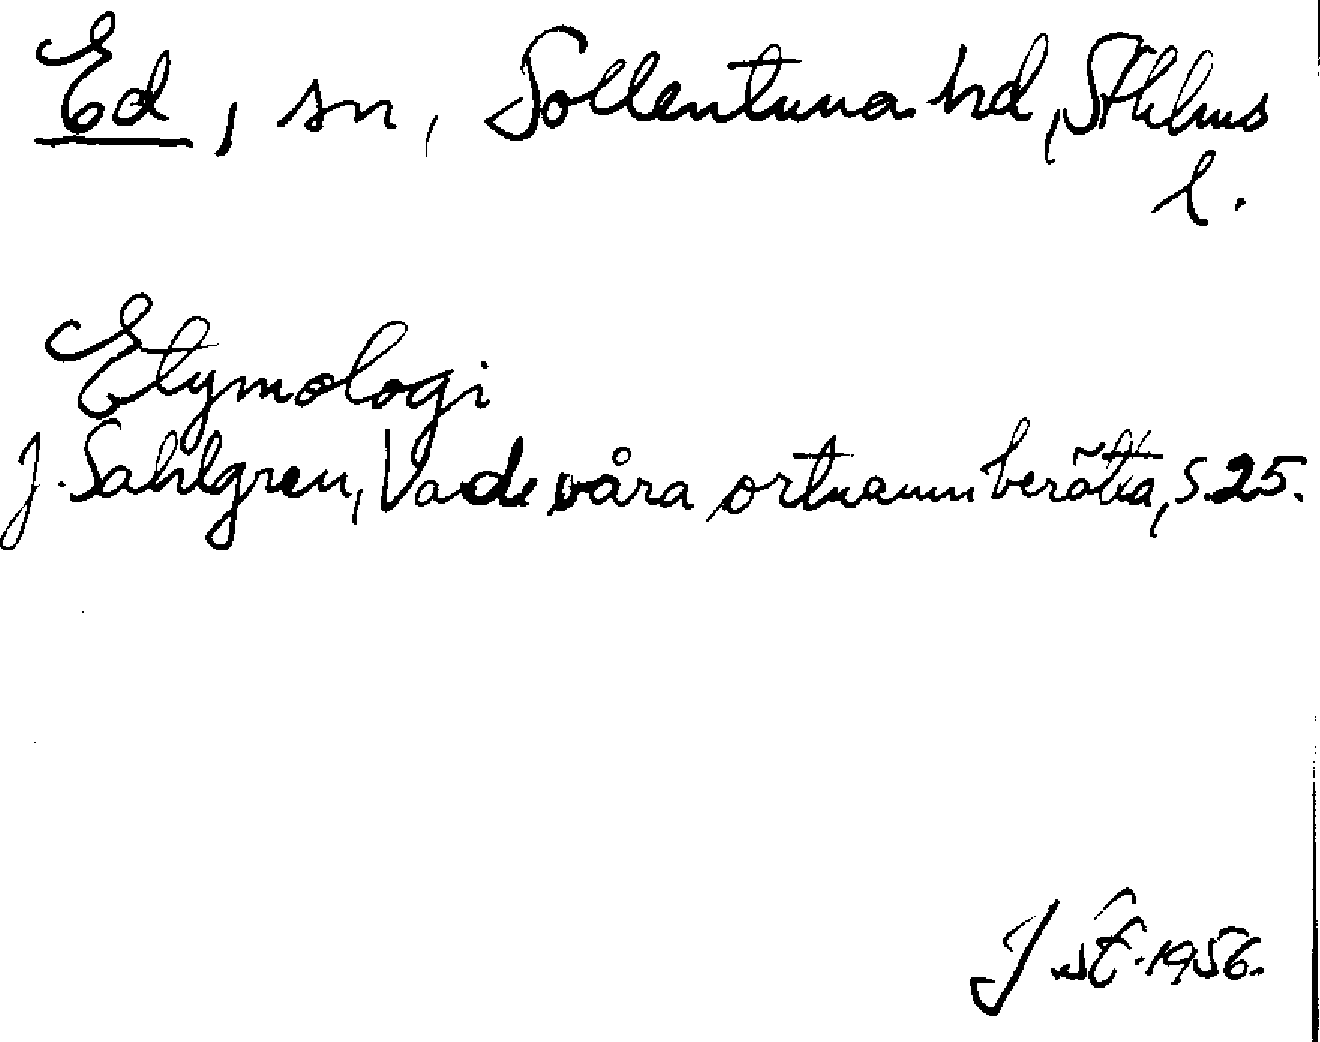 Ed, sn, Sollentuna hd, Sthlms
l.
Etymologi
J. Sahlgren, Vad våra ortnamn berätta, s. 25.
1956.